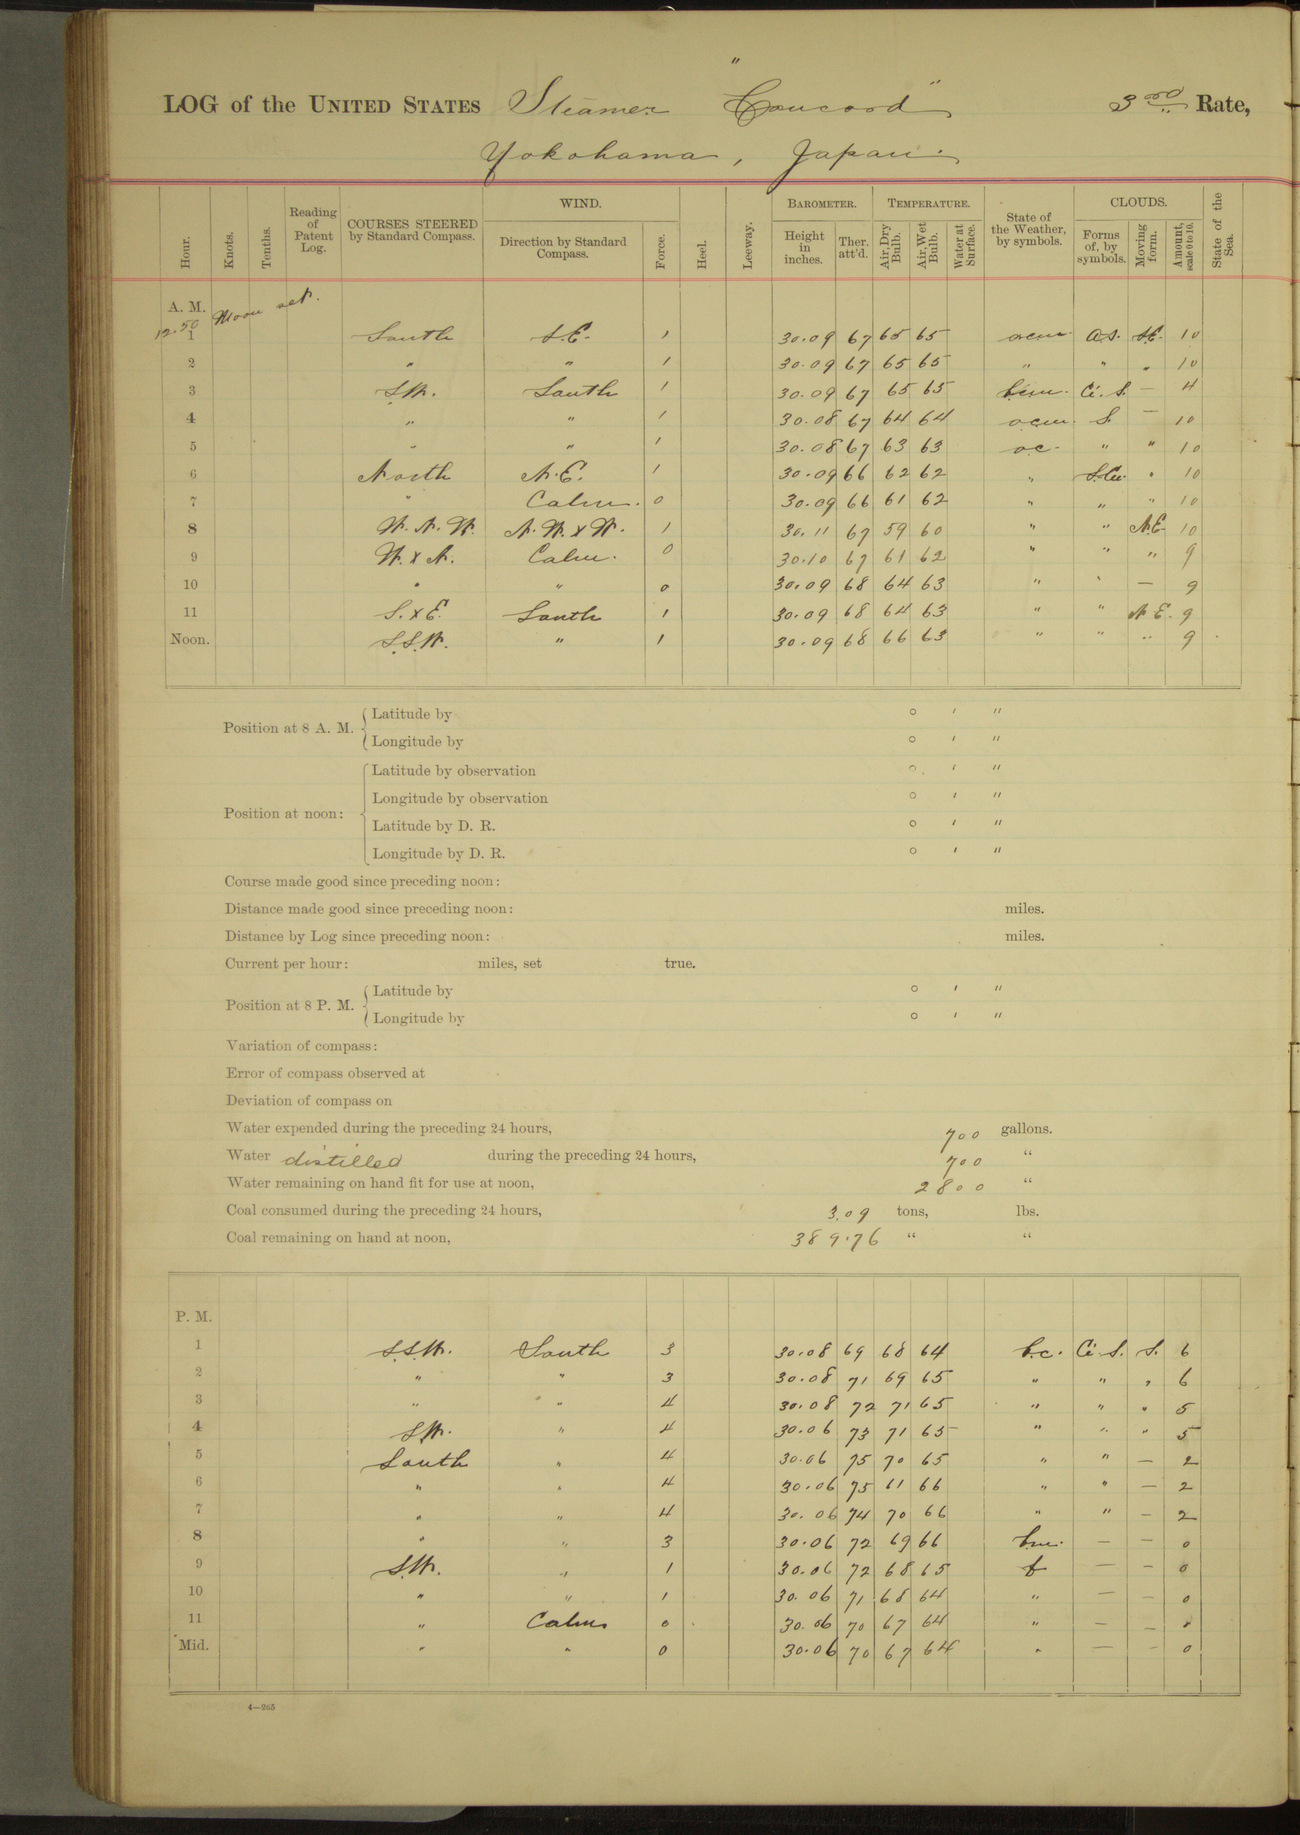 LOG of the UNITED STATES Steamer "Concord" 3rd Rate,
Yokohama, Japan.
Hour. Knots. Tenths. Reading of Patent Log. COURSES STEERED by Standard Compass. WIND. Direction by Standard Compass. Force. Heel. Leeway. BAROMETER. Height in inches. Ther. att'd. TEMPERATURE. Air Dry Bulb. Air Wet Bulb. Water at Surface. State of the Weather, by symbols. CLOUDS. Forms of, by symbols. Moving form. Amount, scale 0 to 10. State of the Sea.
A. M.
12.50 Moon set.
1 South S.E. 1 30.09 67 65 65 ocm. A.S. S.E. 10
2 " " 1 30.09 67 65 65 " " " 10
3 S.W. South 1 30.09 67 65 65 Ci. S. — 4
4 " " 1 30.08 67 64 64 ocm. S. — 10
5 " " 1 30.08 67 63 63 oc. " " 10
6 North N.E. 1 30.09 66 62 62 " S.Cu. " 10
7 " Calm. 0 30.09 66 61 62 " " " 10
8 W.N.W. N.W. x W. 1 30.11 67 59 60 " " N.E. 10
9 W. x N. Calm. 0 30.10 67 61 62 " " " 9
10 " " 0 30.09 68 64 63 " " — 9
11 S. x E. South 1 30.09 68 64 63 " " N.E. 9
Noon. S.S.W. " 1 30.09 68 66 63 " " " 9
Position at 8 A. M. Latitude by ° ' "
Longitude by ° ' "
Position at noon: Latitude by observation ° ' "
Longitude by observation ° ' "
Latitude by D. R. ° ' "
Longitude by D. R. ° ' "
Course made good since preceding noon:
Distance made good since preceding noon: miles.
Distance by Log since preceding noon: miles.
Current per hour: miles, set true.
Position at 8 P. M. Latitude by ° ' "
Longitude by ° ' "
Variation of compass:
Error of compass observed at
Deviation of compass on
Water expended during the preceding 24 hours, 700 gallons.
Water distilled during the preceding 24 hours, 700 "
Water remaining on hand fit for use at noon, 2800 "
Coal consumed during the preceding 24 hours, 3.09 tons, lbs.
Coal remaining on hand at noon, 389.76 " "
P. M.
1 S.S.W. South 3 30.08 69 68 64 b.c. Ci. S. S. 6
2 " " 3 30.08 71 69 65 " " " 6
3 " " 4 30.08 72 71 65 " " " 5
4 S.W. " 4 30.06 73 71 65 " " " 5
5 South " 4 30.06 75 70 65 " " — 2
6 " " 4 30.06 75 61 66 " " — 2
7 " " 4 30.06 74 70 66 " " — 2
8 " " 3 30.06 72 69 66 b.m. — — 0
9 S.W. " 1 30.06 72 68 65 b — — 0
10 " " 1 30.06 71 68 64 " — — 0
11 " Calm 0 30.06 70 67 64 " — — 0
Mid. " " 0 30.06 70 67 64 " — — 0
4—265